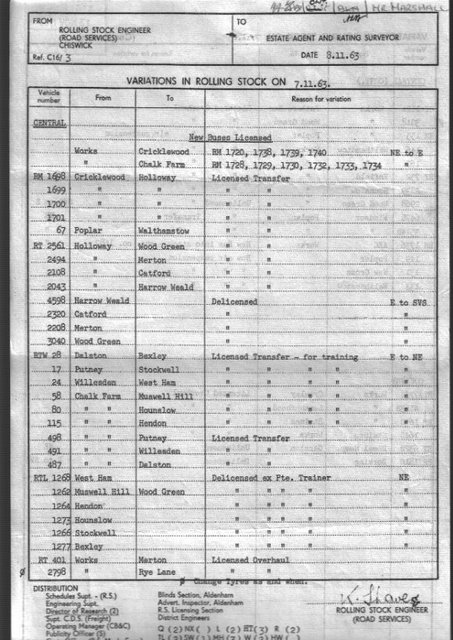 MR MARSHALL
FROM TO
ROLLING STOCK ENGINEER
(ROAD SERVICES)
CHISWICK
ESTATE AGENT AND RATING SURVEYOR
Ref. C16/ 3 DATE 8.11.63
VARIATIONS IN ROLLING STOCK ON 7.11.63.
Vehicle number From To Reason for variation
CENTRAL
New Buses Licensed
Works Cricklewood RM 1720, 1738, 1739, 1740 NE to E
" Chalk Farm RM 1728, 1729, 1730, 1732, 1733, 1734 "
RM 1698 Cricklewood Holloway Licensed Transfer
1699 " " " "
1700 " " " "
1701 " " " "
67 Poplar Walthamstow " "
RT 2561 Holloway Wood Green " "
2494 " Merton " "
2108 " Catford " "
2043 " Harrow Weald " "
4598 Harrow Weald Delicensed E to SVS
2320 Catford " "
2208 Merton " "
3040 Wood Green " "
RTW 28 Dalston Bexley Licensed Transfer - for training E to NE
17 Putney Stockwell " " " " "
24 Willesden West Ham " " " " "
58 Chalk Farm Muswell Hill " " " " "
80 " " Hounslow " " " " "
115 " " Hendon " " " " "
498 " " Putney Licensed Transfer "
491 " " Willesden " " "
487 " " Dalston " " "
RTL 1268 West Ham Delicensed ex Pte. Trainer NE
1262 Muswell Hill Wood Green " " " " "
1264 Hendon " " " " "
1273 Hounslow " " " " "
1266 Stockwell " " " " "
1277 Bexley " " " " "
RT 401 Works Merton Licensed Overhaul
ø 2798 " Rye Lane " "
ø Change Tyres as and when.
DISTRIBUTION
Schedules Supt. - (R.S.) Blinds Section, Aldenham
Engineering Supt. Advert. Inspector, Aldenham
Director of Research (2) R.S. Licensing Section
Supt. C.D.S. (Freight) District Engineers
Operating Manager (CB&C)
Publicity Officer (5)
ROLLING STOCK ENGINEER
(ROAD SERVICES)